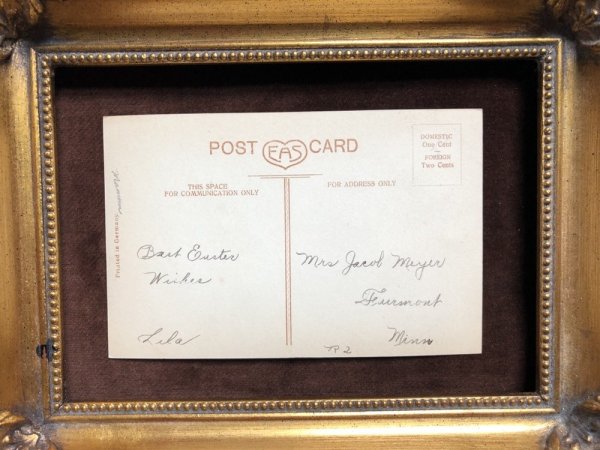 POST EAS CARD
DOMESTIC
One Cent
FOREIGN
Two Cents
THIS SPACE
FOR COMMUNICATION ONLY
FOR ADDRESS ONLY
Printed in Germany
Best Easter
Wishes
Lila
Mrs Jacob Meyer
Fairmont
Minn